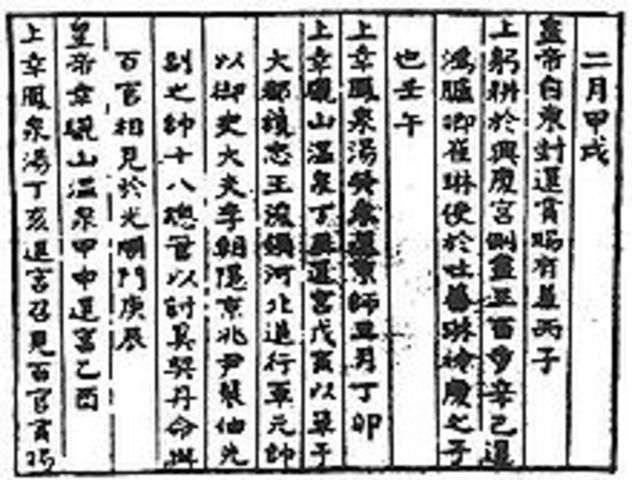 二月甲戌
皇帝自東封還賞賜有差丙子
上躬耕於興慶宮側盡三百步辛巳還
鴻臚卿崔琳使於吐蕃琳神慶之子
也壬午
上幸鳳泉湯還京師月丁卯
上幸驪山溫泉丁還宮戊寅以單于
大都護忠王浚領河北道行軍元帥
以御史大夫李朝隱京兆尹裴伷先
副之帥十八總管以討奚契丹命與
百官相見於光順門庚辰
皇帝幸驪山溫泉甲申還宮乙酉
上幸鳳泉湯丁亥還宮召見百官賞賜